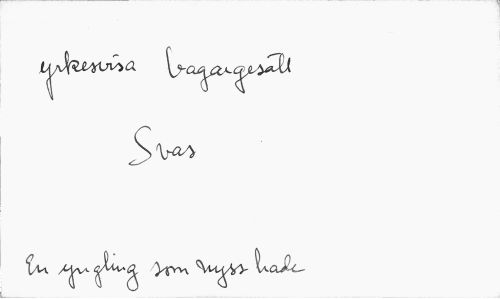 yrkesvisa bagargesäll
Svas
En yngling som nyss hade